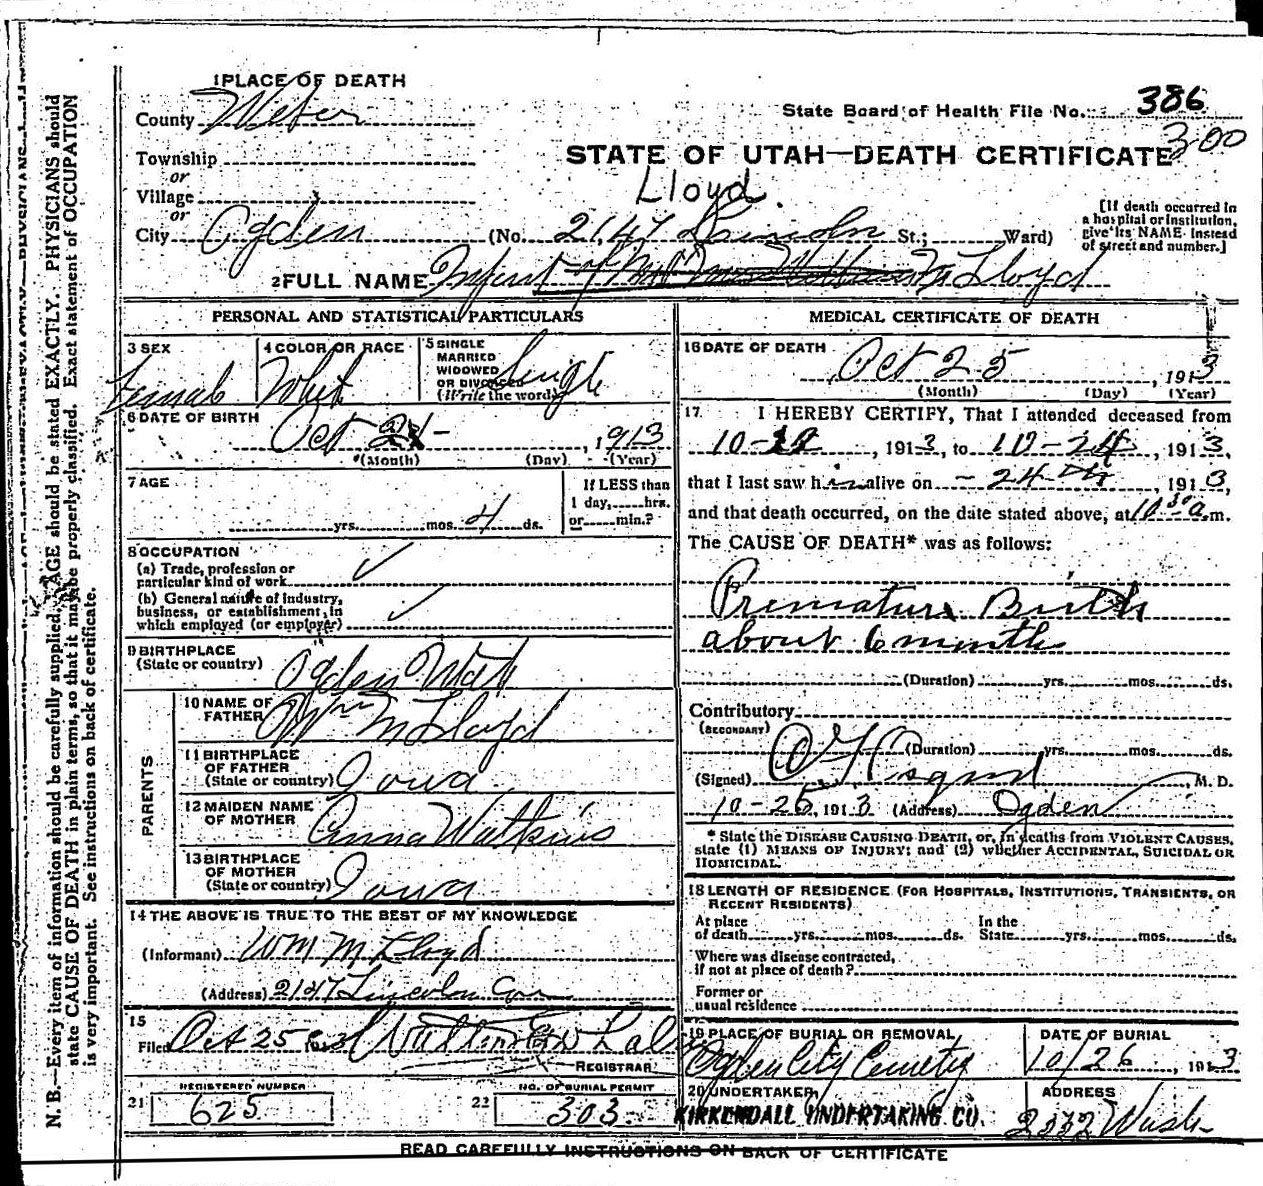 1 PLACE OF DEATH
County Weber
State Board of Health File No. 386
300
Township
or
Village
or
STATE OF UTAH—DEATH CERTIFICATE
Lloyd
City Ogden (No. 2147 Lincoln St.; Ward)
[If death occurred in
a hospital or institution,
give its NAME instead
of street and number.]
2 FULL NAME Infant of Lloyd
PERSONAL AND STATISTICAL PARTICULARS
3 SEX
Female
4 COLOR OR RACE
Whit
5 SINGLE
MARRIED
WIDOWED
OR DIVORCED
(Write the word)
Single
6 DATE OF BIRTH
Oct 21 - , 1913
(Month) (Day) (Year)
7 AGE
yrs. mos. 4 ds.
If LESS than
1 day, hrs.
or min.?
8 OCCUPATION
(a) Trade, profession or
particular kind of work
(b) General nature of industry,
business, or establishment, in
which employed (or employer)
9 BIRTHPLACE
(State or country) Ogden Utah
PARENTS
10 NAME OF
FATHER Wm M Lloyd
11 BIRTHPLACE
OF FATHER
(State or country) Iowa
12 MAIDEN NAME
OF MOTHER Anna Watkins
13 BIRTHPLACE
OF MOTHER
(State or country) Iowa
14 THE ABOVE IS TRUE TO THE BEST OF MY KNOWLEDGE
(Informant) Wm M Lloyd
(Address) 2147 Lincoln
15
Filed Oct 25
REGISTRAR
REGISTERED NUMBER
21 625
NO. OF BURIAL PERMIT
22 303
MEDICAL CERTIFICATE OF DEATH
16 DATE OF DEATH
Oct 25 , 1913
(Month) (Day) (Year)
17 I HEREBY CERTIFY, That I attended deceased from
, 1913, to 10-24, 1913,
that I last saw h alive on -24 th, 1913,
and that death occurred, on the date stated above, at 10 30 a.m.
The CAUSE OF DEATH* was as follows:
Premature Birth
about 6 months
(Duration) yrs. mos. ds.
Contributory
(SECONDARY)
(Duration) yrs. mos. ds.
(Signed) M. D.
10-25, 1913 (Address) Ogden
* State the DISEASE CAUSING DEATH, or, in deaths from VIOLENT CAUSES,
state (1) MEANS OF INJURY; and (2) whether ACCIDENTAL, SUICIDAL OR
HOMICIDAL.
18 LENGTH OF RESIDENCE (FOR HOSPITALS, INSTITUTIONS, TRANSIENTS, OR
RECENT RESIDENTS)
At place
of death yrs. mos. ds.
In the
State yrs. mos. ds.
Where was disease contracted,
if not at place of death?
Former or
usual residence
19 PLACE OF BURIAL OR REMOVAL
Ogden City Cemetry
DATE OF BURIAL
10/26, 1913
20 UNDERTAKER
KIRKENDALL UNDERTAKING CO.
ADDRESS
2332 Wash
READ CAREFULLY INSTRUCTIONS ON BACK OF CERTIFICATE
N. B.—Every item of information should be carefully supplied. AGE should be stated EXACTLY. PHYSICIANS should
state CAUSE OF DEATH in plain terms, so that it may be properly classified. Exact statement of OCCUPATION
is very important. See instructions on back of certificate.